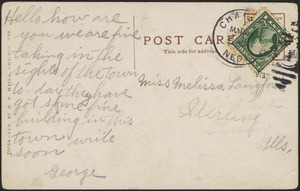 Hello how are
you we are fine
taking in the
sights of the town
to-day they have
got some fine
building in this
town write
soon
George
POST CARD
This side is for the address.
Miss Melissa
Sterling
Ills.